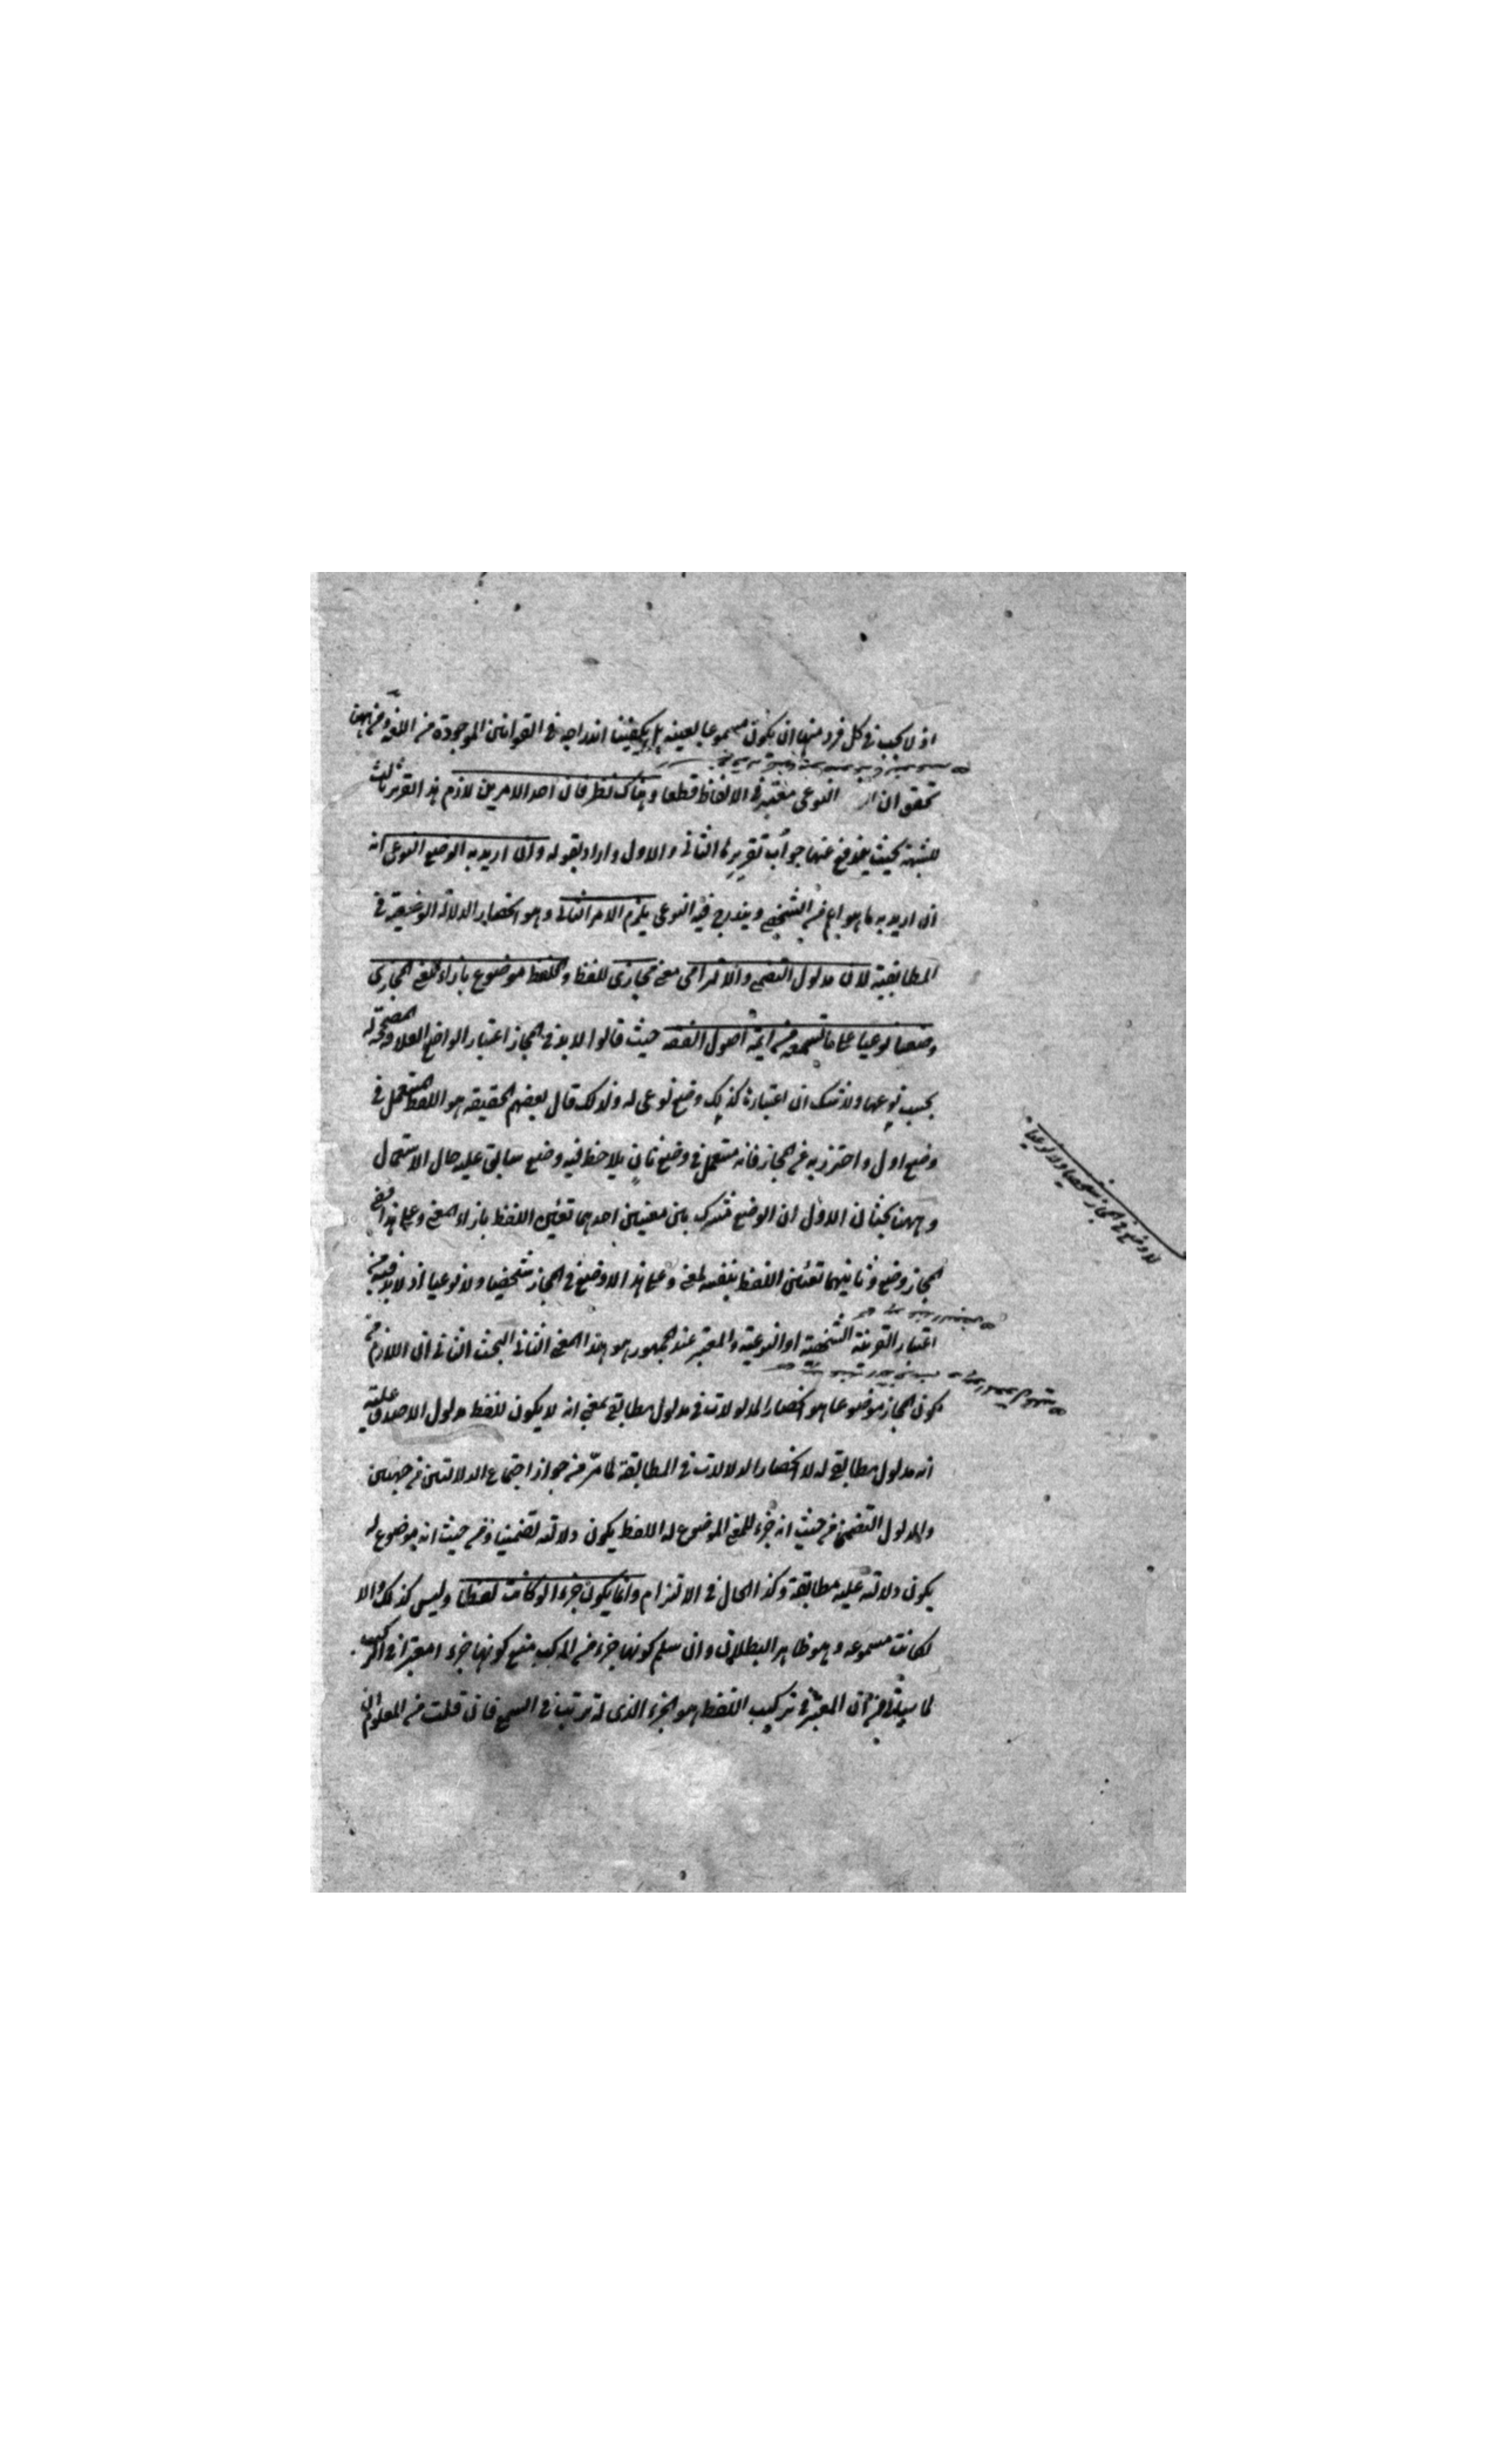 اذ لا يجب فى كل فرد منها ان يكون مسموعا بعينه بل يكفينا اندراجه فى القوانين الموجودة من اللغة ومن ههنا
تحقق ان النوعى معتبر فى الالفاظ قطعا وهناك نظر فان احد الامرين لازم هذا تقرير ثالث
للشبهة بحيث يندفع عنها جواب تقريرى الثانى والاول واراد بقوله وان اريد به الوضع النوعى انه
ان اريد به ما هو اعم من الشخصى ويندرج فيه النوعى يلزم الامر الثانى وهو انحصار الدلالة الوضعية فى
المطابقية لان مدلول التضمنى والالتزامى معنى مجازى للفظ واللفظ موضوع بازاء المعنى المجازى
وضعا نوعيا على ما تسمعه من ائمة اصول الفقه حيث قالوا لا بد فى المجاز اعتبار الواضع العلاقة المصححة له
بحسب نوعها ولا شك ان اعتباره كذلك وضع نوعى له ولذلك قال بعضهم الحقيقة هو اللفظ المستعمل فى
وضع اول واحترز به عن المجاز فانه مستعمل فى وضع ثان يلاحظ فيه وضع سابق عليه حال الاستعمال
وههنا بحثان الاول ان الوضع مشترك بين معنيين احدهما تعيين اللفظ بازاء المعنى وعلى هذا ففى
المجاز وضع وثانيهما تعيين اللفظ بنفسه لمعنى وعلى هذا لا وضع فى المجاز شخصيا ولا نوعيا اذ لا بد فيه من
اعتبار القرينة الشخصية او النوعية والمعتبر عند الجمهور هو هذا المعنى الثانى البحث الثانى ان اللازم من
كون المجاز موضوعا هو انحصار المدلولات فى مدلول مطابقى بمعنى انه لا يكون للفظ مدلول الا صدق عليه
انه مدلول مطابقى له لا انحصار الدلالات فى المطابقة لما مر من جواز اجتماع الدلالتين من جهتين
والمدلول التضمنى من حيث انه جزء للمعنى الموضوع له اللفظ يكون دلالته تضمنيا ومن حيث انه موضوع له
يكون دلالته عليه مطابقة وكذا الحال فى الالتزام وانما يكون جزءا لو كانت لفظا وليس كذلك والا
لكانت مسموعه وهو ظاهر البطلان وان سلم كونها جزء من المركب منع كونها جزءا معتبرا فى التركيب
لما سياتى من ان المعتبر فى تركيب اللفظ هو الجزء الذى له ترتيب فى السمع فان قلت من المعلوم ان
لا وضع فى المجاز شخصيا ولا نوعيا